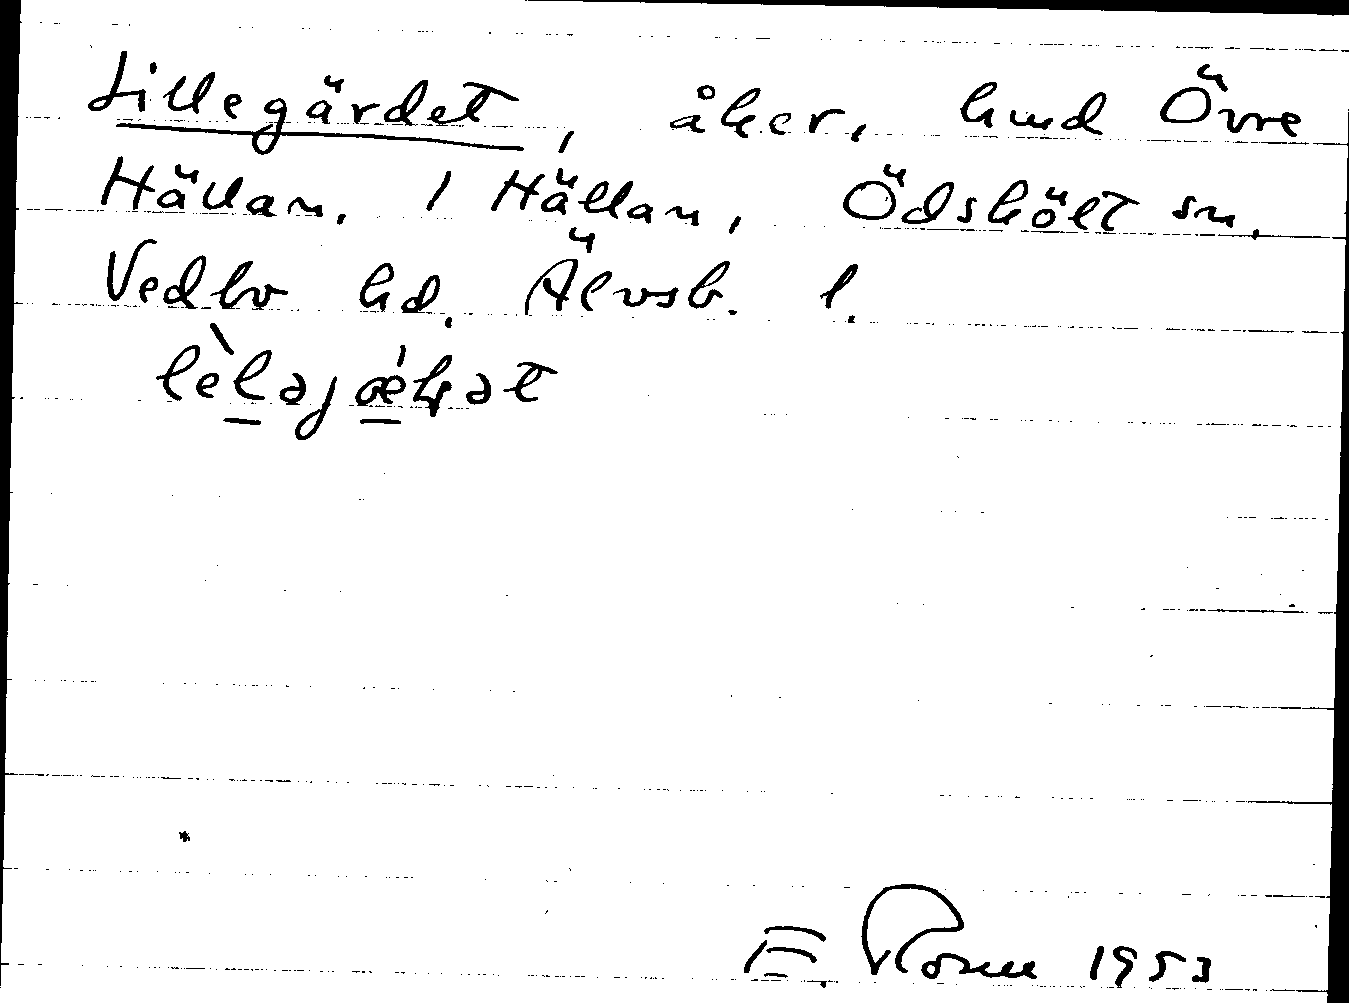 Lillegärdet, åker, hmd Övre
Hällan. 1 Hällan, Ödskölt sn.
Vedbo hd. Älvsb. l.
E. Rosell 1953